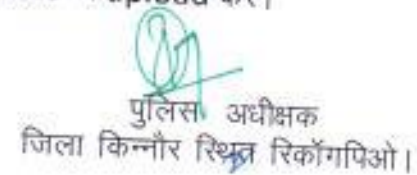 upload करें।
पुलिस अधीक्षक
जिला किन्नौर स्थित रिकॉंगपिओ।